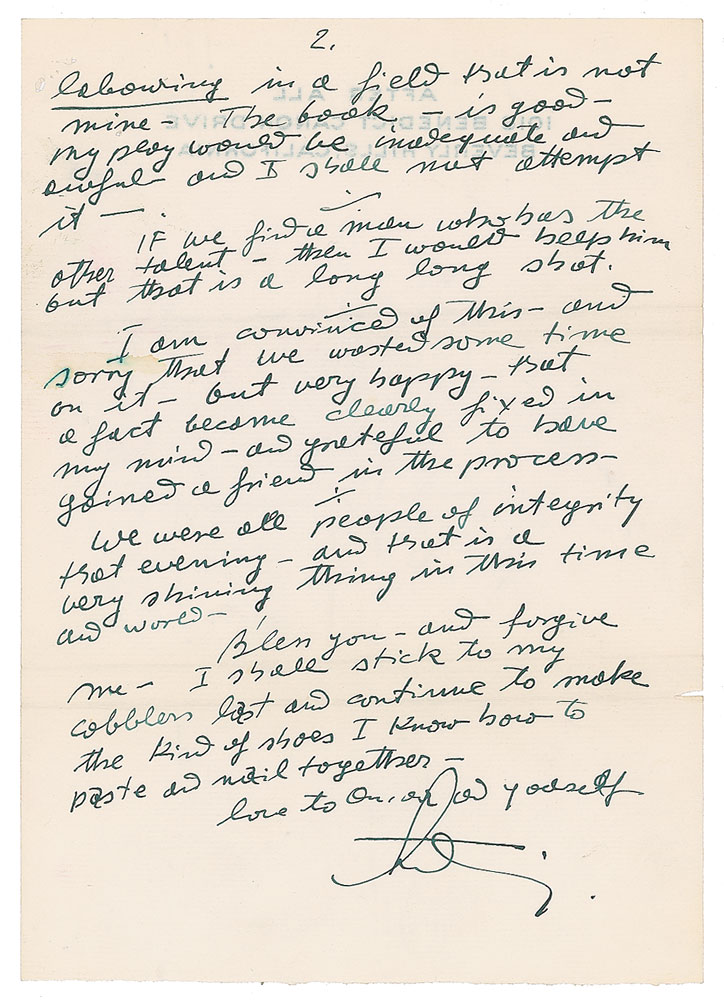 2.
labouring in a field that is not
mine – The book is good –
my play would be inadequate and
awful and I shall not attempt
it –
If we find a man who has the
other talent – then I would help him
but that is a long long shot.
I am convinced of this – and
sorry that we wasted some time
on it – but very happy – that
a fact became clearly fixed in
my mind – and grateful to have
gained a friend in the process –
We were all people of integrity
that evening – and that is a
very shining thing in this time
and world –
Bless you – and forgive
me – I shall stick to my
cobblers last and continue to make
the kind of shoes I know how to
paste and nail together –
love to and yourself
AFTER ALL
BENEDICT CANON DRIVE
BEVERLY HILLS, CALIFORNIA